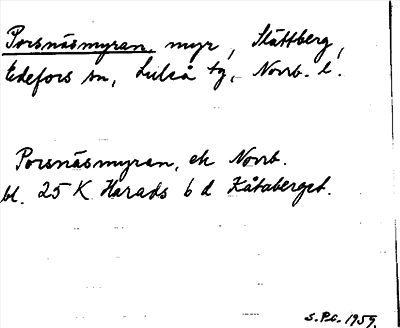 Porsnäsmyran, myr, Slättberg,
Edefors sn, Luleå tg, Norrb. l.
Porsnäsmyran, ek Norrb.
bl. 25 K Harads 6 d Kåtaberget.
S.P.C. 1959.